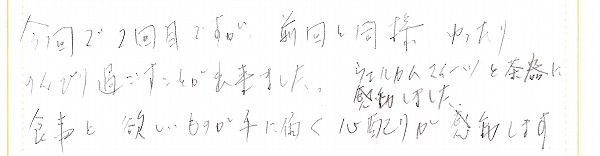 今回で2回目ですが、前回と同様 ゆったり
のんびり過ごすことが出来ました。ウェルカムスイーツと茶器に
感動しました。
食事と欲しいものが手に届く心配りが感動します